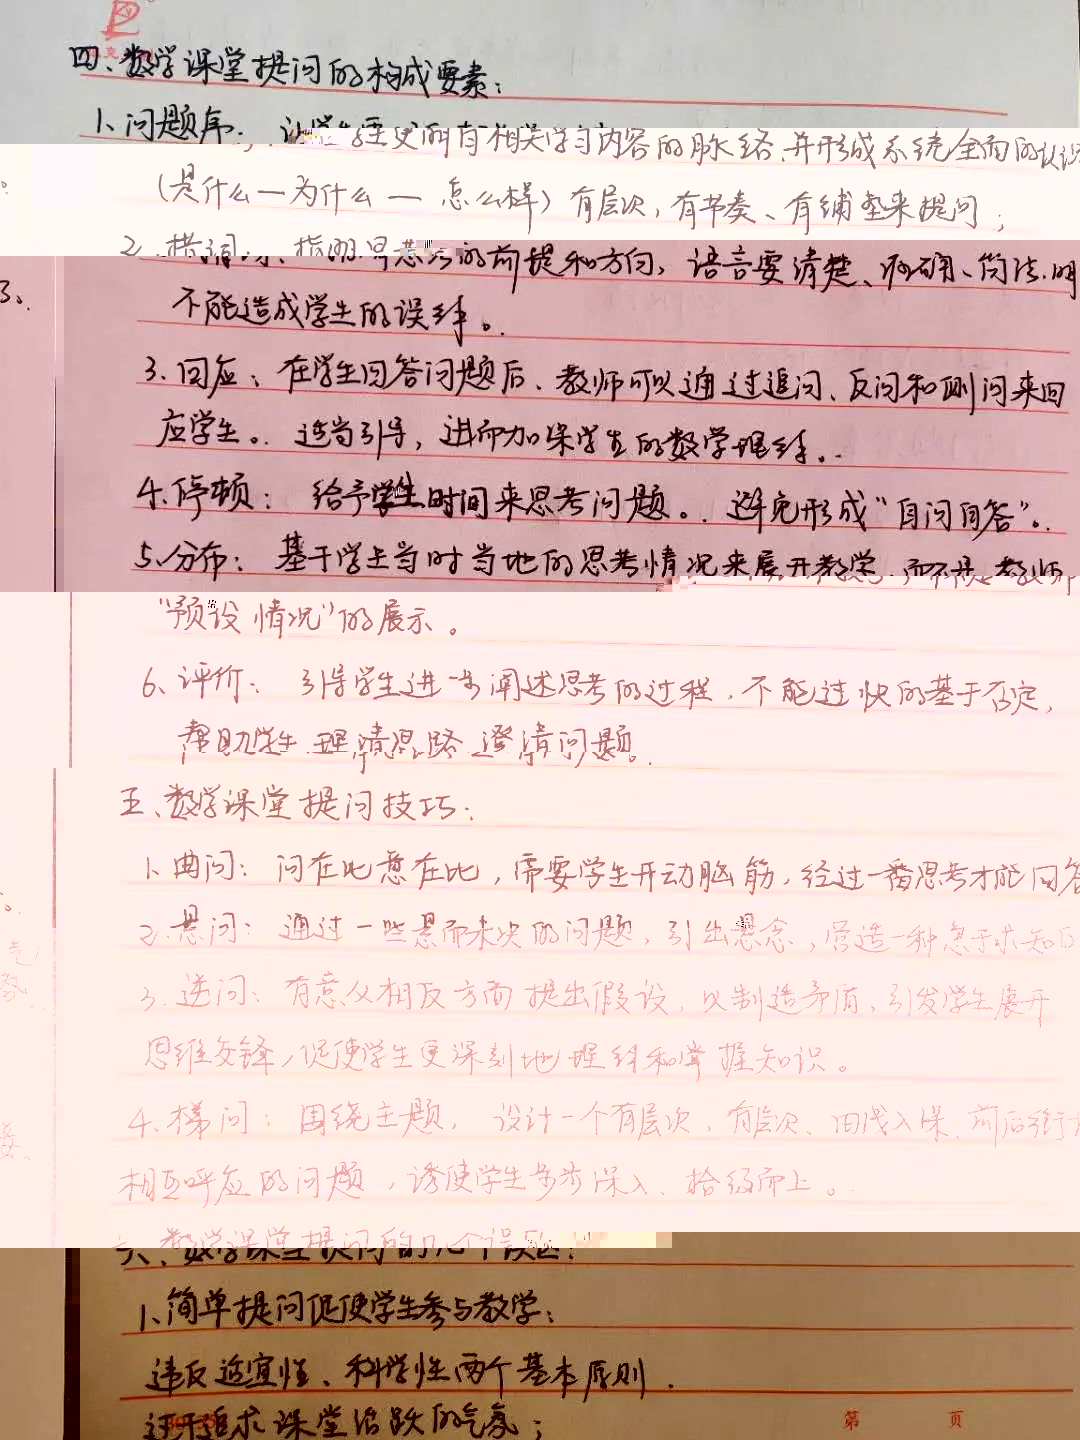 四、数学课堂提问的构成要素：
1、问题序：让学生 更明 有相关学习内容的脉络、并形成系统全面的认识
（是什么—为什么—怎么样）有层次，有节奏、有铺垫来提问；
2、措词：指明思考的前提和方向，语言要清楚、明确、简洁.明
不能造成学生的误解。
3.回应：在学生回答问题后、教师可以通过追问、反问和侧问来回
应学生。适当引导，进而加深学生的数学理解。
4.停顿：给予学生时间来思考问题。避免形成“自问自答”。
5.分布：基于学生当时当地的思考情况来展开教学，而不是教师
“预设情况”的展示。
6、评价：引导学生进一步阐述思考的过程，不能过快的基于否定，
帮助学生理清思路 澄清问题。
五、数学课堂提问技巧：
1、曲问：问在此意在比，需要学生开动脑筋，经过一番思考才能回答
2.悬问：通过一些悬而未决的问题，引出悬念，营造一种急于求知
3.逆问：有意从相反方面提出假设，以制造矛盾，引发学生展开
思维交锋，促使学生更深刻地理解和掌握知识。
4.梯问：围绕主题，设计一个有层次，有层次、由浅入深、前后衔
相互呼应的问题，诱使学生步步深入、拾级而上。
六、数学课堂提问的几个误区：
1、简单提问促使学生参与教学：
违反适宜性、科学性两个基本原则.
过于追求课堂活跃的气氛；
第 页